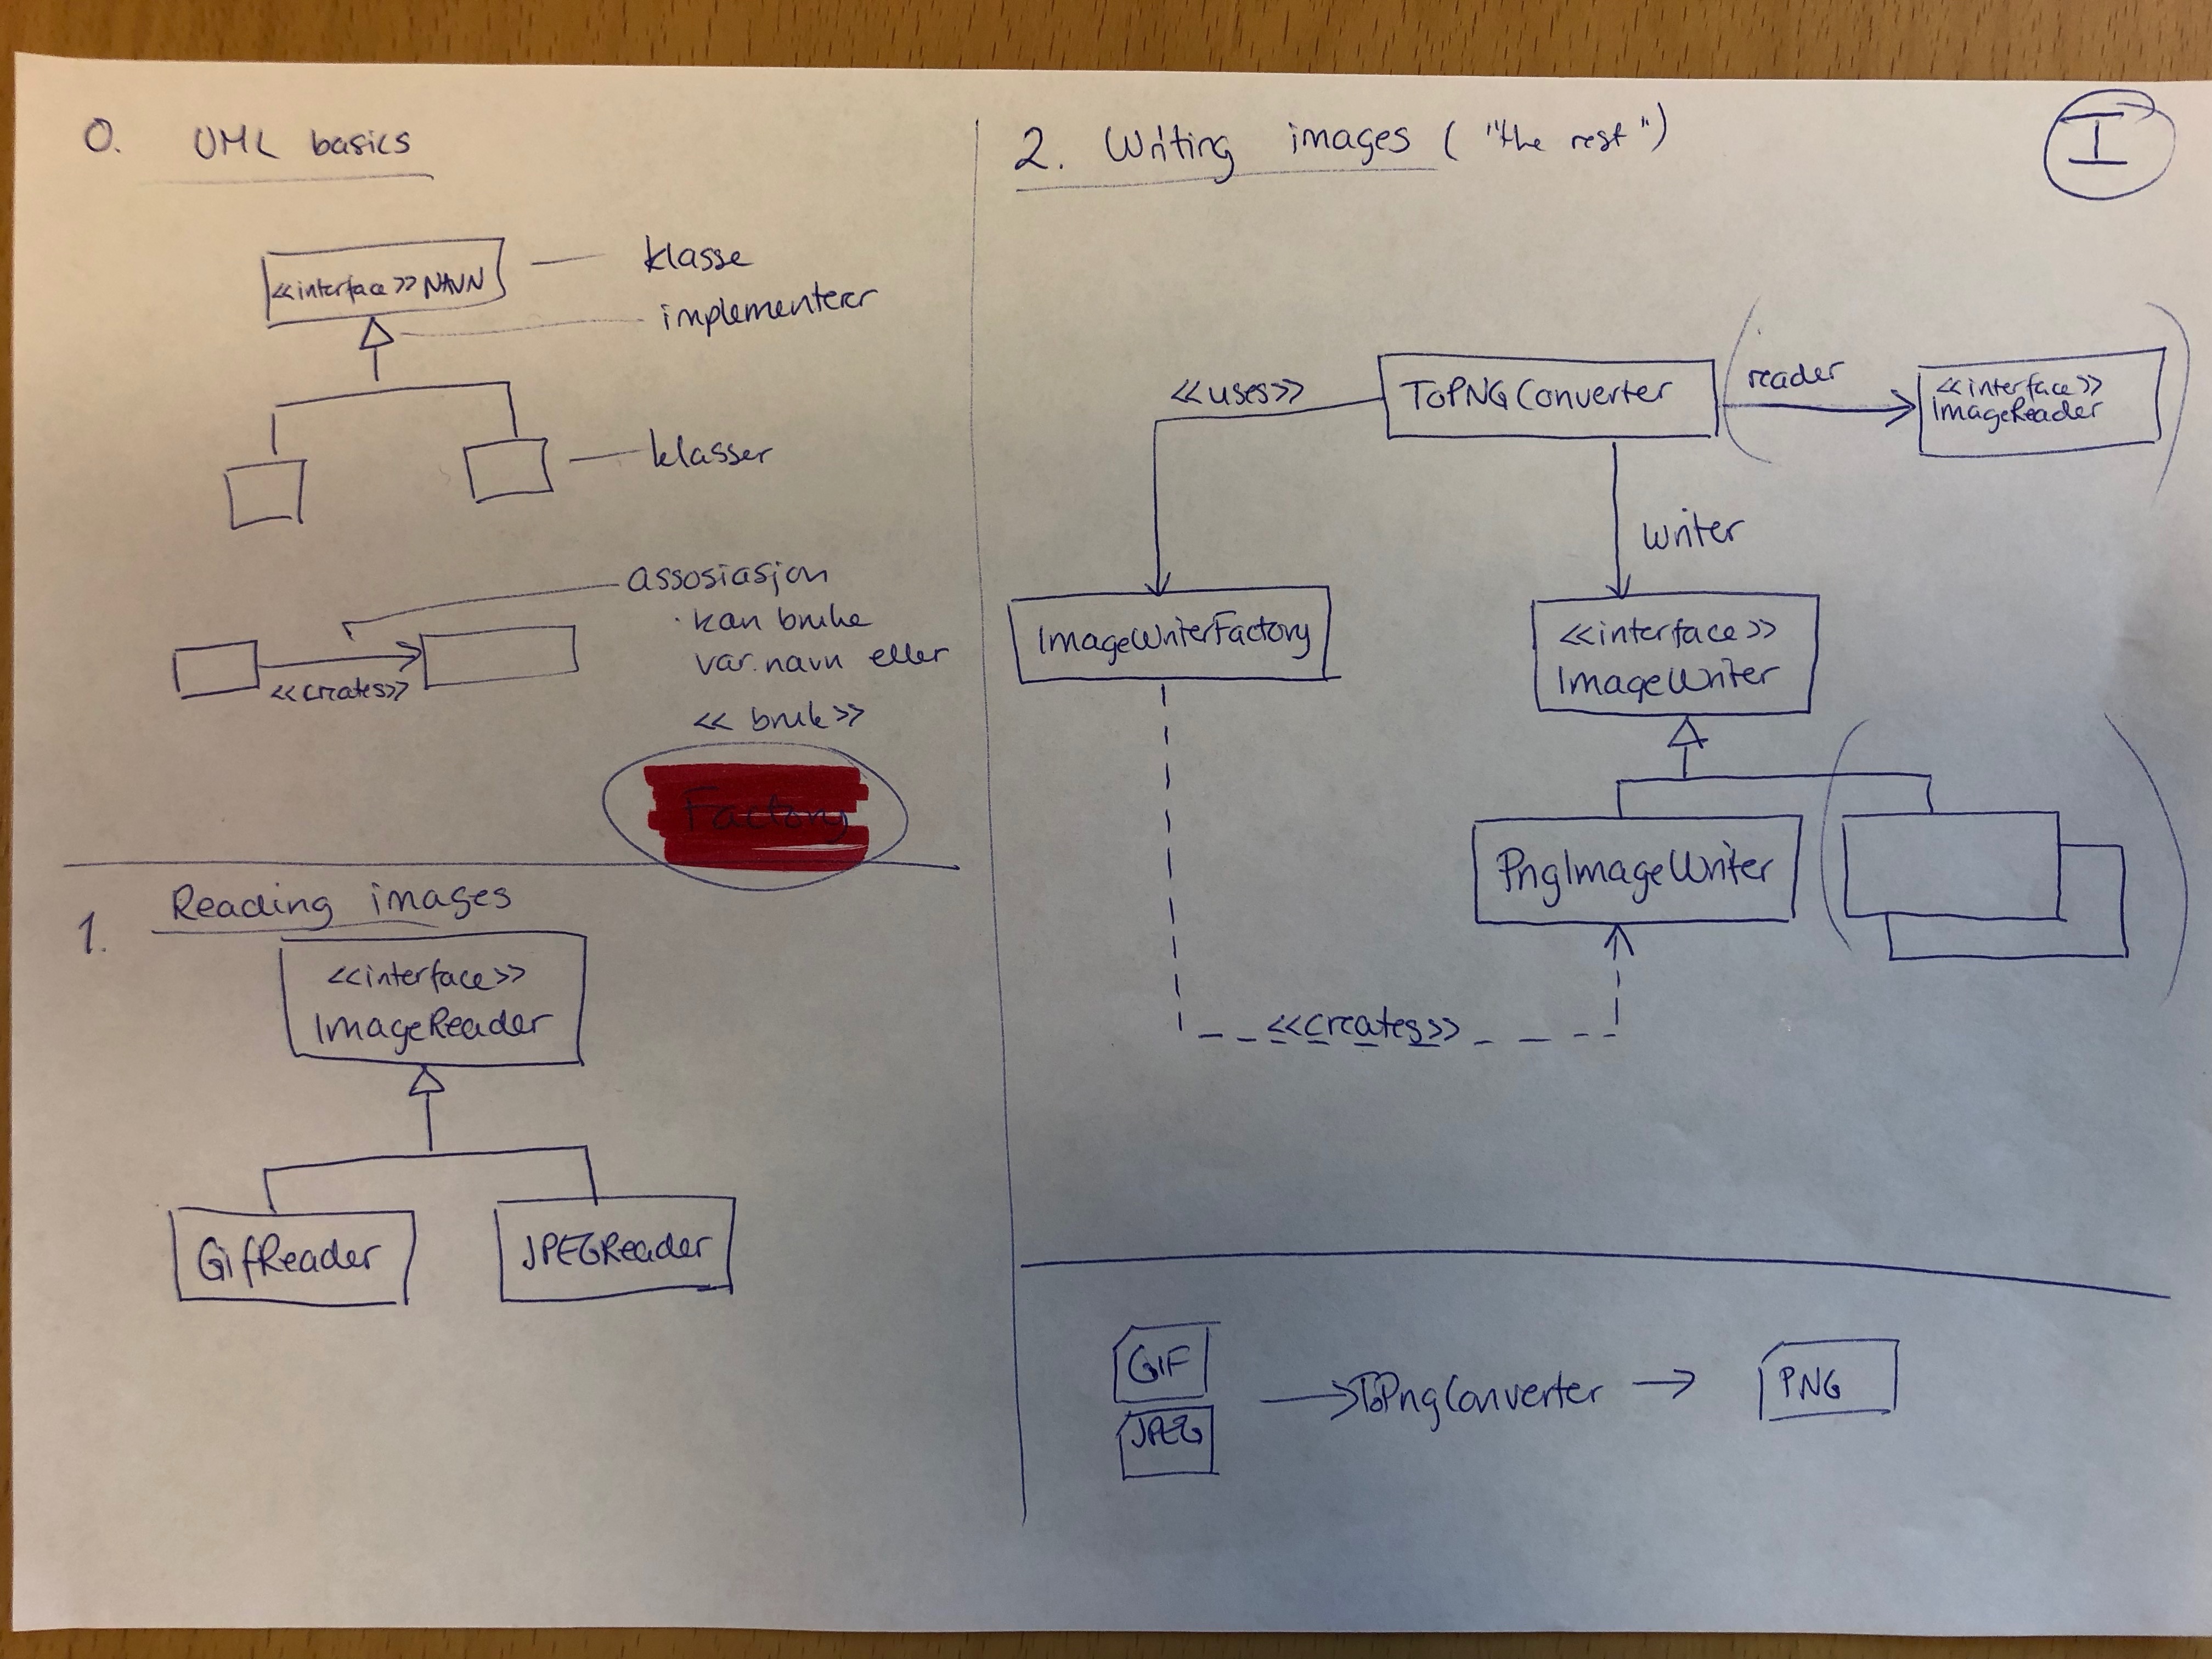 0. UML basics
<<interface>> NAVN
klasse
implementerer
klasser
assosiasjon
· kan bruke
var.navn eller
<< bruk >>
<<creates>>
Factory
1. Reading images
<<interface>>
ImageReader
GifReader
JPEGReader
2. Writing images ( "the rest" )
I
<<uses>>
ToPNGConverter
reader
<<interface>>
ImageReader
writer
ImageWriterFactory
<<interface>>
ImageWriter
PngImageWriter
<<creates>>
GIF
JPEG
ToPngConverter
PNG